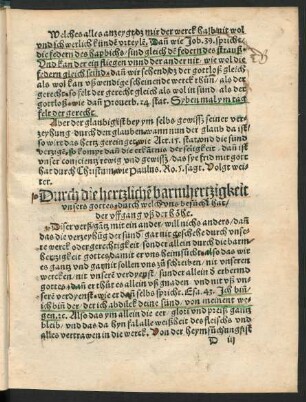 Welches alles anzeygt dz mir der werck halb nit wol
vnd schwerlich kündẽ vrteylẽ. Dañ wie Job. 39. spricht/
die federn des habichs sind gleich dẽ federn des strauß
Vnd kan der ein fliegen vnnd der ander nit/ wie wol die
federn gleich seind/ dañ wir sehend dz der gottloß gleich
als wol kan vßwendige schein ende werck thůn/ als der
gerecht/ so felt der gerecht gleich als wol in sünd als der
gottloß/ wie dañ Prouerb. 24. stat. Syben mal ym tag
felt der gerecht.
Aber der glaubig ist bey ym selbs gewiß seiner ver-
zeyhung durch den glauben/ wann nun der glaub da ist/
so wirt das hertz gereiniget/ wie Act. 15. stat/ vnd die sünd
verzygẽ/ so kompt dañ die erkantnus der seligkeit/ dañ ist
vnser conscientz rewig vnd gewiß/ das sye frid mit gott
hat durch Christum/ wie Paulus. Ro. 5. sagt. Volgt wei-
ter.
Durch die hertzlichẽ barmhertzigkeit
vnsers gottes/ durch welch vns besůcht hat/
der vffgang vß der höhe.
Diser verß gãtz mit ein ander/ will nichs anders/ dañ
das die verzeyhũg der sünd/ gar nit geschehe durch vnse-
re werck oder gerechtigkeit/ sonder allein durch die barm-
hertzigkeit gottes/ damit er vns heimsůcht hat/ also das wir
es gantz vnd gar nit sollen vns zů schreiben/ nit vnserem
wercken/ nit vnsere verdyenst/ sunder allein d erbermd
gottes/ dañ er thůt es allein vß gnaden/ vnd nit vß vn-
sere verdyenst/ wie er dañ selbs spricht. Esa. 43. Ich bin/
ich bin der/ der ich abdilck deine sünd/ von meinent we
gen. ꝛc. Also das ym allein die eer/ glori vnd preiß gantz
bleib/ vnd das da hyn fal alle weißheit des fleischs/ vnd
alles vertrawen in die werck. Von der heymsůchung ist
D iij